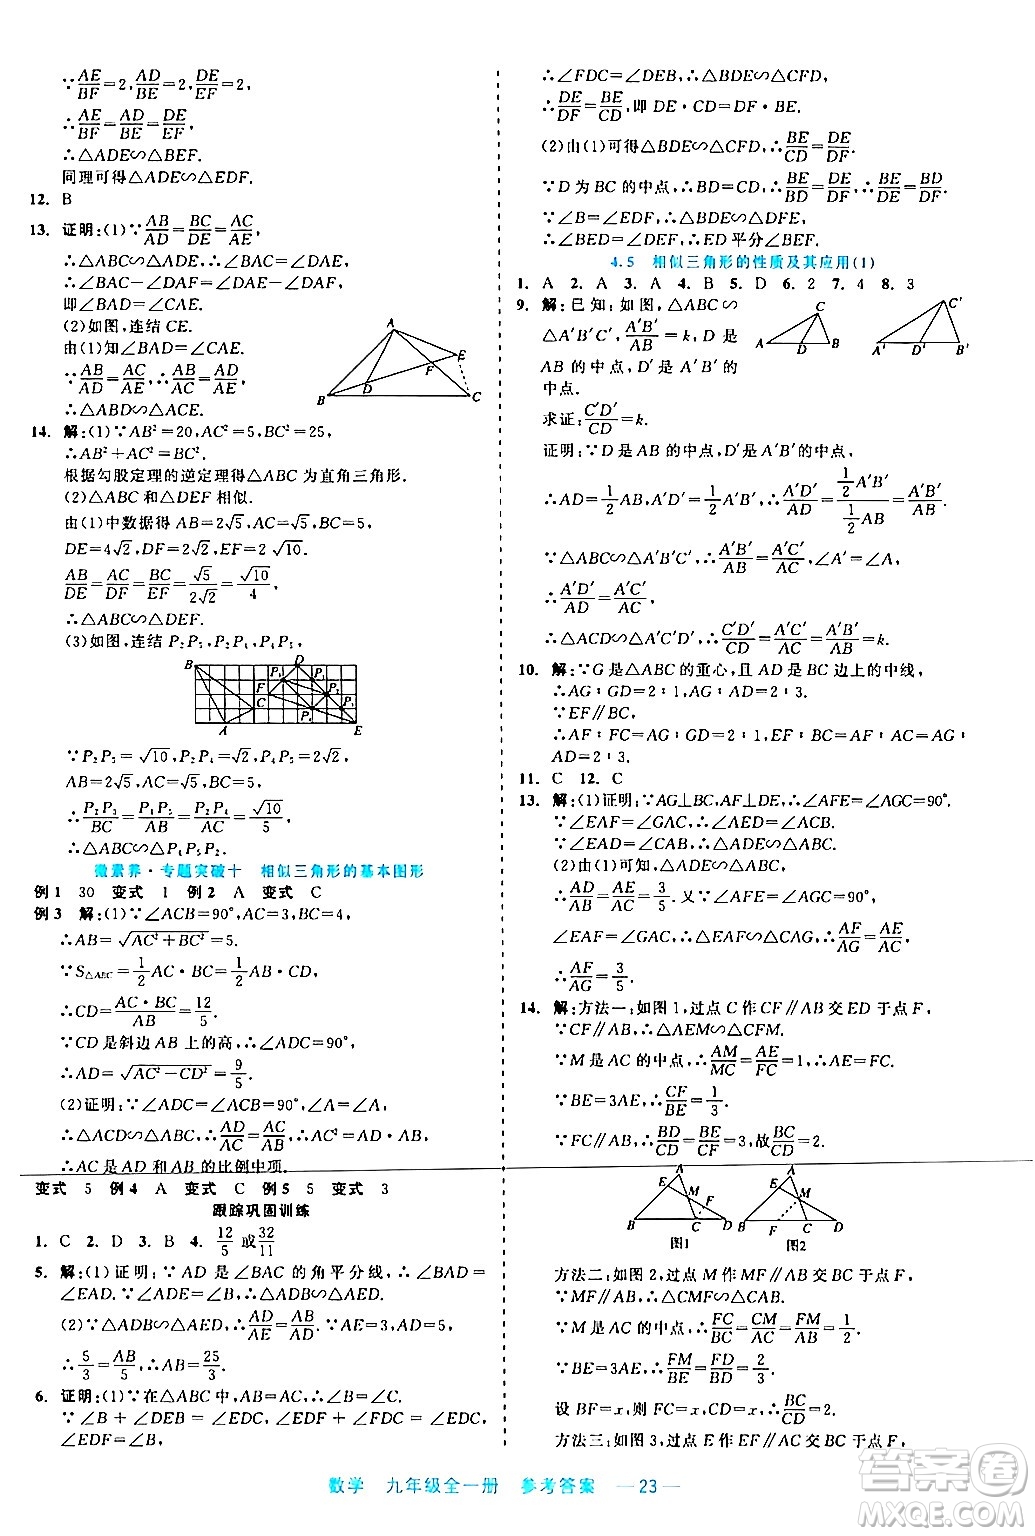 ∵AE/BF=2,AD/BE=2,DE/EF=2,
∴AE/BF=AD/BE=DE/EF,
∴△ADE∽△BEF.
同理可得△ADE∽△EDF.
12. B
13. 证明:(1)∵AB/AD=BC/DE=AC/AE,
∴△ABC∽△ADE,∴∠BAC=∠DAE,
∴∠BAC-∠DAC=∠DAE-∠DAC,
即∠BAD=∠CAE.
(2)如图,连结CE.
由(1)知∠BAD=∠CAE,
∵AB/AD=AC/AE,∴AB/AC=AD/AE,
∴△ABD∽△ACE.
A
E
F
D
B
C
14. 解:(1)∵AB²=20,AC²=5,BC²=25,
∴AB²+AC²=BC²,
根据勾股定理的逆定理得△ABC为直角三角形.
(2)△ABC和△DEF相似.
由(1)中数据得AB=2√5,AC=√5,BC=5,
DE=4√2,DF=2√2,EF=2√10.
AB/DE=AC/DF=BC/EF=√5/2√2=√10/4,
∴△ABC∽△DEF.
(3)如图,连结P₂P₅,P₂P₄,P₄P₅,
B D F P₁ P₅ P₂ C P₄ P₃ A E
∵P₂P₅=√10,P₂P₄=√2,P₄P₅=2√2,
AB=2√5,AC=√5,BC=5,
∴P₂P₅/BC=P₄P₅/AB=P₂P₄/AC=√10/5,
∴△ABC∽△P₄P₅P₂.
微素养·专题突破十 相似三角形的基本图形
例1 30 变式 1 例2 A 变式 C
例3 解:(1)∵∠ACB=90°,AC=3,BC=4,
∴AB=√AC²+BC²=5.
∵S△ABC=1/2AC·BC=1/2AB·CD,
∴CD=AC·BC/AB=12/5.
∵CD是斜边AB上的高,∴∠ADC=90°,
∴AD=√AC²-CD²=9/5.
(2)证明:∵∠ADC=∠ACB=90°,∠A=∠A,
∴△ACD∽△ABC,∴AD/AC=AC/AB,
∴AC是AD和AB的比例中项.
变式 5 例4 A 变式 C 例5 5 变式 3
跟踪巩固训练
1. C 2. D 3. B 4. 12/5或32/11
5. 解:(1)证明:∵AD是∠BAC的角平分线,∴∠BAD=
∠EAD.∵∠ADE=∠B,∴△ADB∽△AED.
(2)∵△ADB∽△AED,∴AD/AE=AB/AD,∵AE=3,AD=5,
∴5/3=AB/5,∴AB=25/3.
6. 证明:(1)∵在△ABC中,AB=AC,∴∠B=∠C.
∵∠B+∠DEB=∠EDC,∠EDC=∠EDF+∠FDC,
∠EDF=∠B,
∴∠FDC=∠DEB,∴△BDE∽△CFD,
∴DE/DF=BE/CD,即DE·CD=DF·BE.
(2)由(1)可得△BDE∽△CFD,∴BE/CD=DE/DF.
∵D为BC的中点,∴BD=CD,∴BE/BD=DE/DF,∴BE/DE=BD/DF.
∵∠B=∠EDF,∴△BDE∽△DFE,
∴∠BED=∠DEF,∴ED平分∠BEF.
4.5 相似三角形的性质及其应用(1)
1. A 2. A 3. A 4. B 5. D 6. 2 7. 4 8. 3
9. 解:已知:如图,△ABC∽
△A'B'C',A'B'/AB=k,D是
AB的中点,D'是A'B'的
中点.
C
A D B
C'
A' D' B'
求证:C'D'/CD=k.
证明:∵D是AB的中点,D'是A'B'的中点,
∴AD=1/2AB,A'D'=1/2A'B',∴A'D'/AD=1/2A'B'/1/2AB=A'B'/AB.
∵△ABC∽△A'B'C',∴A'B'/AB=A'C'/AC,∠A'=∠A,
∴A'D'/AD=A'C'/AC,
∴△ACD∽△A'C'D',∴C'D'/CD=A'C'/AC=A'B'/AB=k.
10. 解:∵G是△ABC的重心,且AD是BC边上的中线,
∴AG∶GD=2∶1,∴AG∶AD=2∶3.
∵EF∥BC,
∴AF∶FC=AG∶GD=2∶1,EF∶BC=AF∶AC=AG∶
AD=2∶3.
11. C 12. C
13. 解:(1)证明:∵AG⊥BC,AF⊥DE,∴∠AFE=∠AGC=90°.
∵∠EAF=∠GAC,∴∠AED=∠ACB.
∵∠EAD=∠CAB,∴△ADE∽△ABC.
(2)由(1)可知△ADE∽△ABC,
∴AD/AB=AE/AC=3/5.∵∠AFE=∠AGC=90°,
∠EAF=∠GAC,∴△EAF∽△CAG,∴AF/AG=AE/AC,
∴AF/AG=3/5.
14. 解:方法一:如图1,过点C作CF∥AB交ED于点F,
∵CF∥AB,∴△AEM∽△CFM.
∵M是AC的中点,∴AM/MC=AE/FC=1,∴AE=FC.
∵BE=3AE,∴CF/BE=1/3.
∵FC∥AB,∴BD/CD=BE/CF=3,故BC/CD=2.
A E M F B C D
图1
A E M B F C D
图2
方法二:如图2,过点M作MF∥AB交BC于点F,
∵MF∥AB,∴△CMF∽△CAB.
∵M是AC的中点,∴FC/BC=CM/AC=FM/AB=1/2.
∵BE=3AE,∴FM/BE=FD/BD=2/3.
设BF=x,则FC=x,CD=x,∴BC/CD=2.
方法三:如图3,过点E作EF∥AC交BC于点F,
数学 九年级全一册 参考答案 —23—
答案圈
MXQE.COM